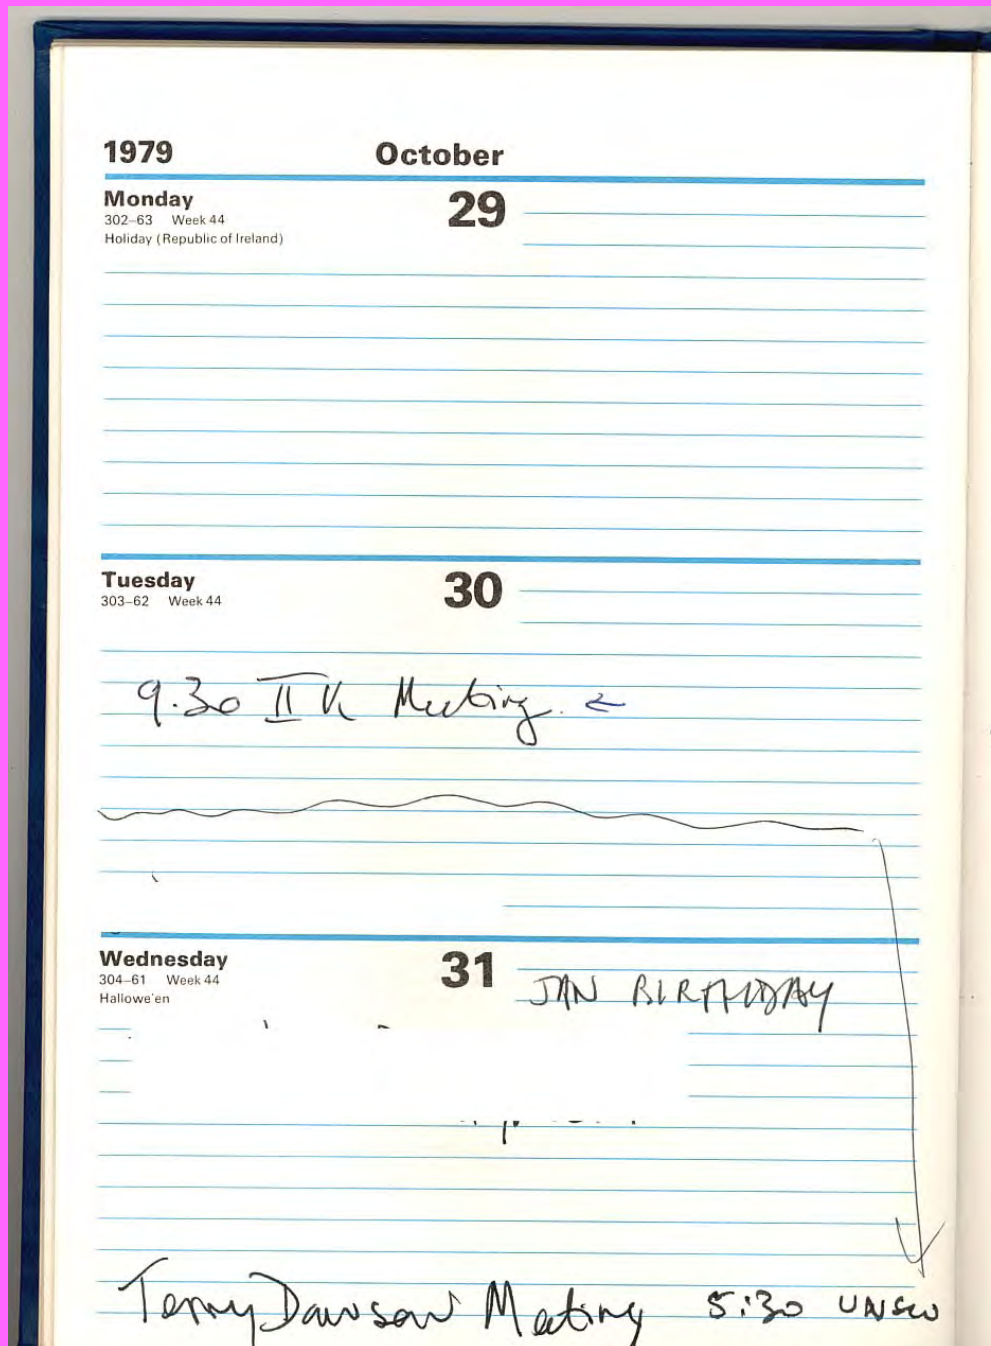 1979 October
Monday 29
302–63 Week 44
Holiday (Republic of Ireland)
Tuesday 30
303–62 Week 44
9.30 II K Meeting. ←
Wednesday 31
304–61 Week 44
Hallowe'en
JAN BIRTHDAY
Terry Dawson Meeting 5:30 UNSW